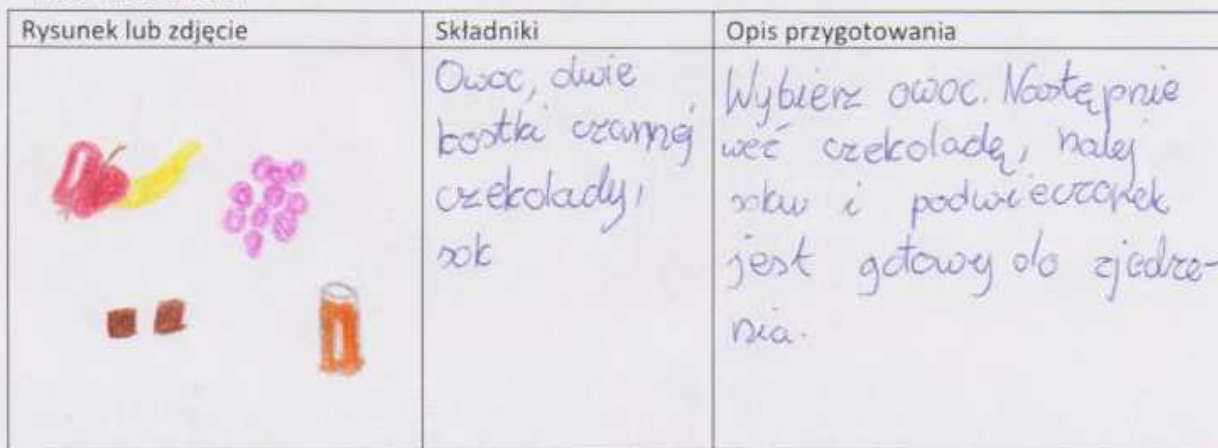 Rysunek lub zdjęcie
Składniki
Opis przygotowania
Owoc, dwie
kostki czarnej
czekolady,
sok
Wybierz owoc. Następnie
weź czekoladę, nalej
soku i podwieczorek
jest gotowy do zjedze-
nia.